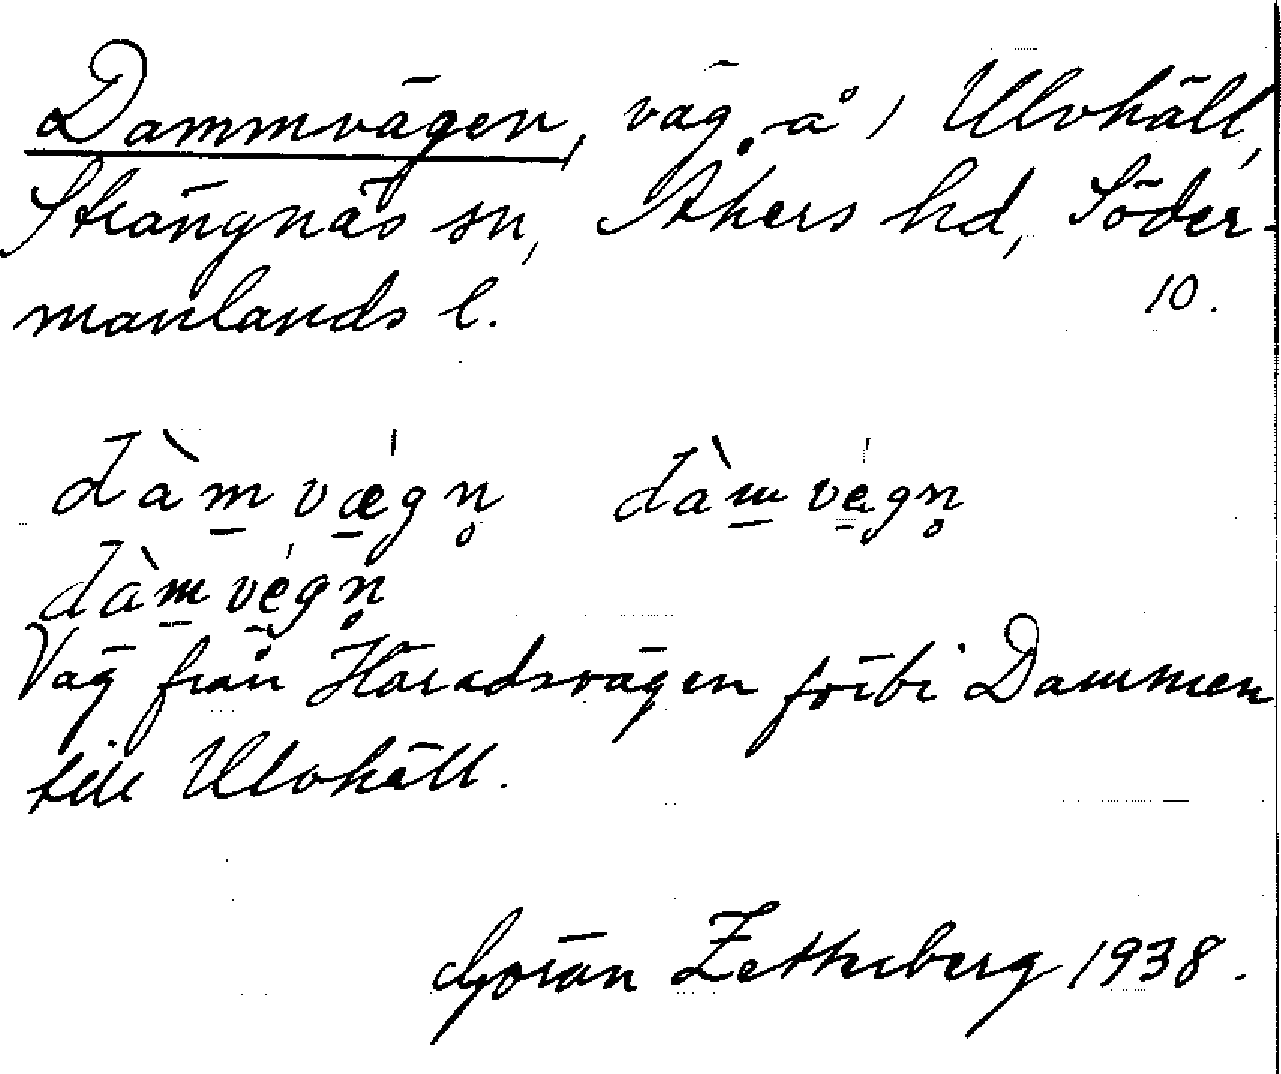 Dammvägen, väg å 1 Ulvhäll,
Strängnäs sn, Åkers hd, Söder-
manlands l. 10.
dàm væ̀gn̥ dàm vegn̥
dàm vegn̥
Väg från Häradsvägen förbi Dammen
till Ulvhäll.
Göran Zetterberg 1938.